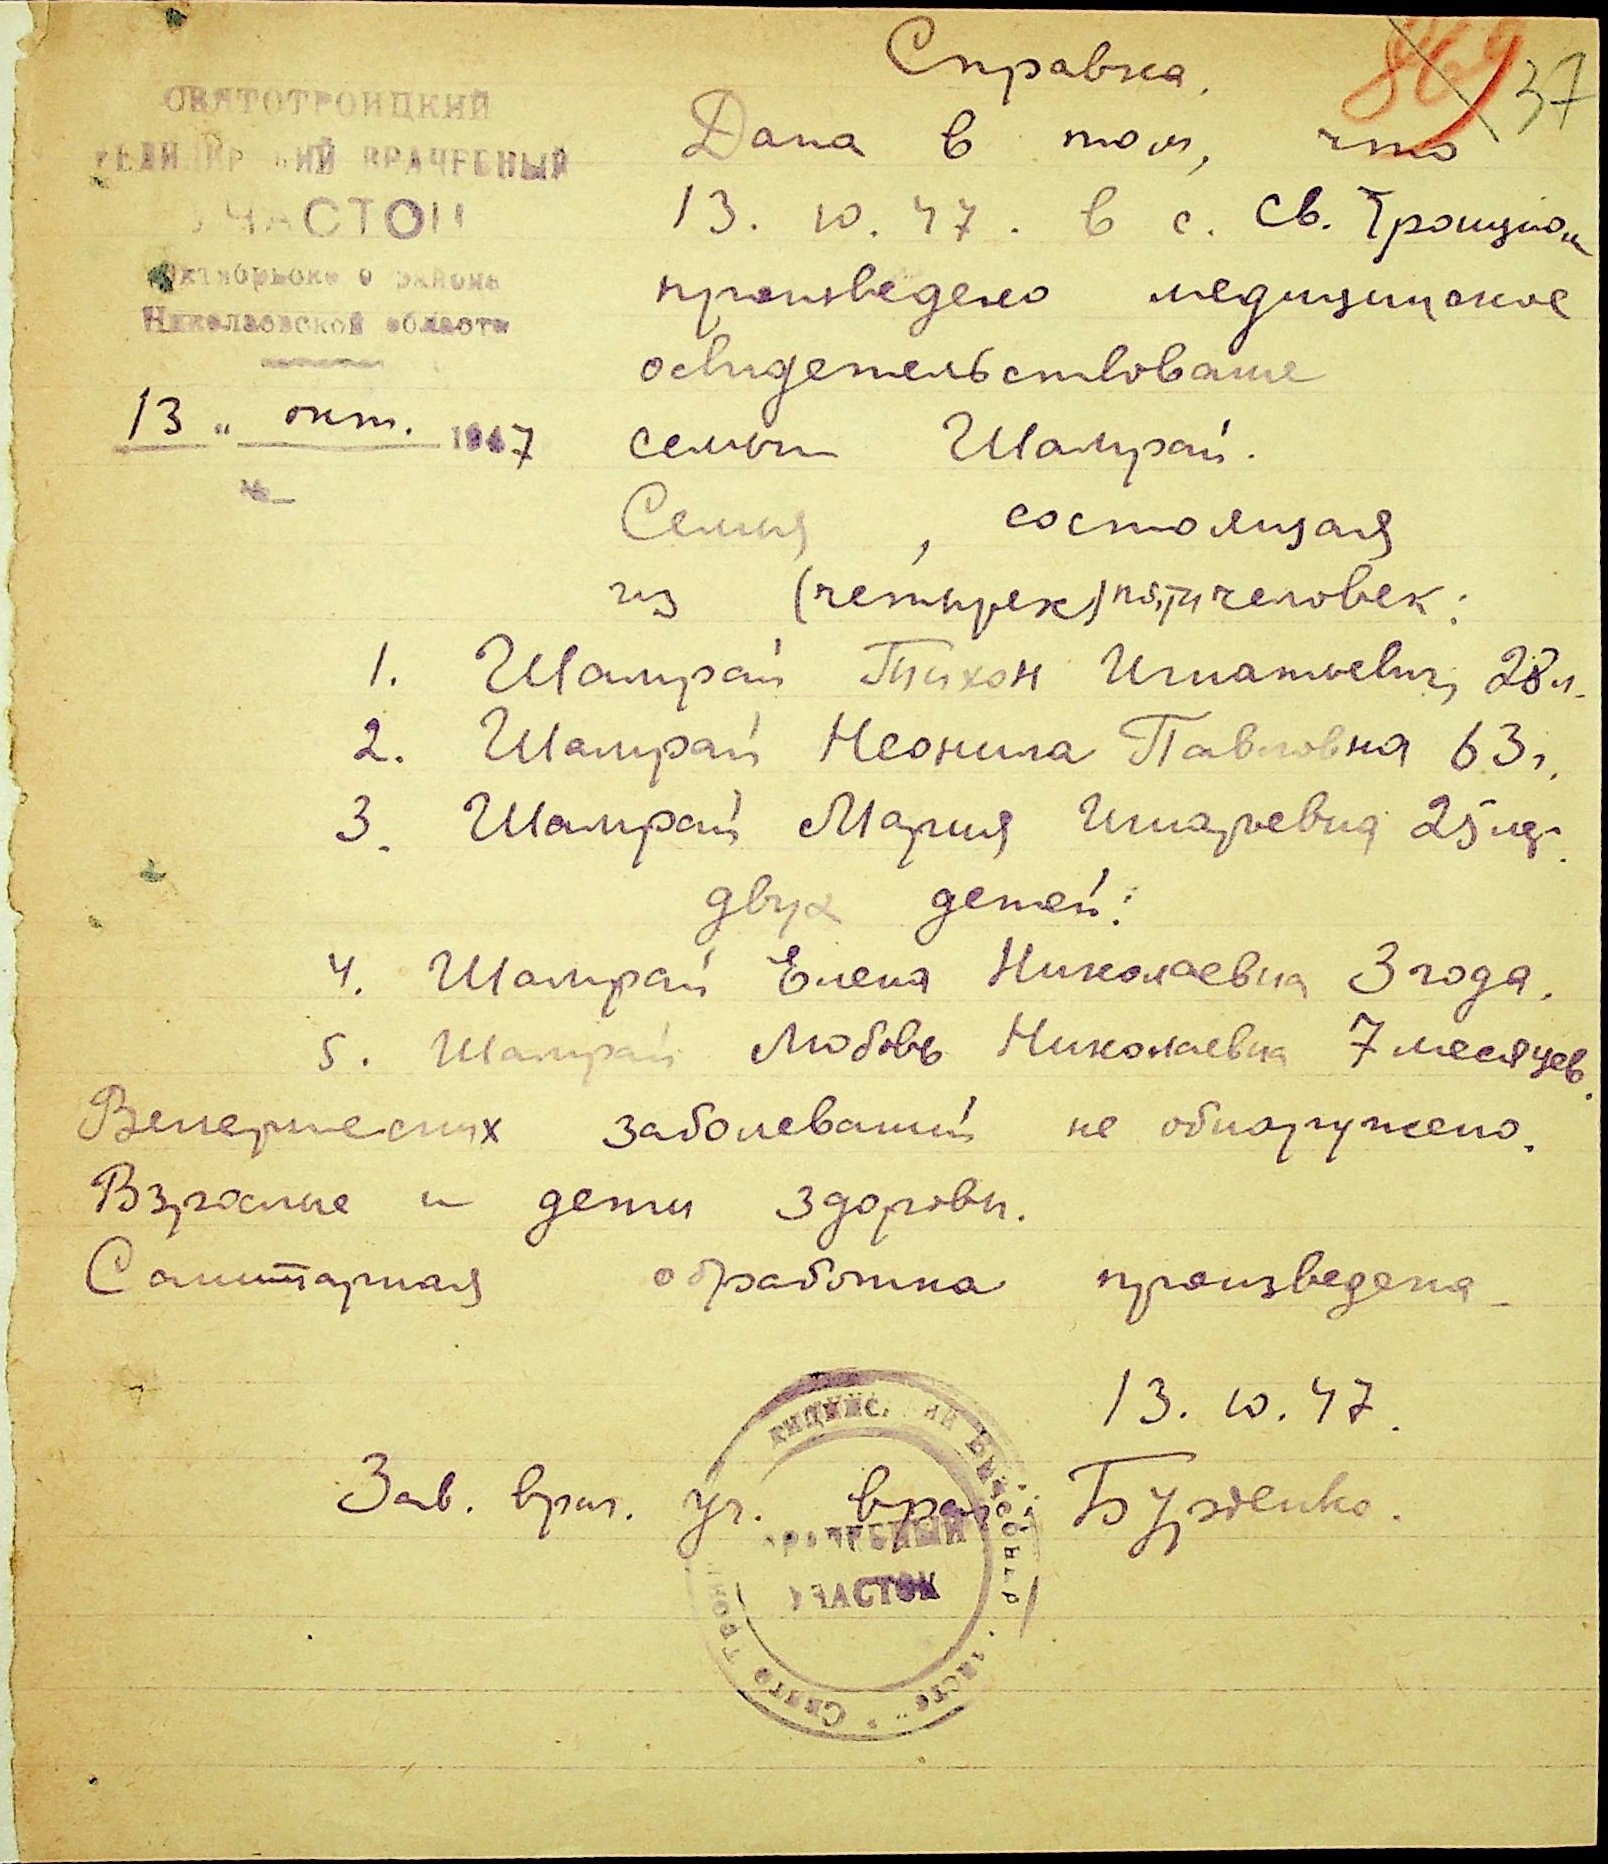 869 37
СВЯТОТРОИЦКИЙ
ВРАЧЕБНЫЙ
УЧАСТОК
Октябрьского района
Николаевской области
13 " окт. 1947
№
Справка.
Дана в том, что
13. 10. 47. в с. Св. Троицком
произведено медицинское
освидетельствование
семьи Шамрай.
Семья, состоящая
из (четырех) пяти человек:
1. Шамрай Тихон Игнатьевич 28 л.
2. Шамрай Неонила Павловна 63 г.
3. Шамрай Мария 25 л.
двух детей:
4. Шамрай Елена Николаевна 3 года.
5. Шамрай Любовь Николаевна 7 месяцев.
Венерических заболеваний не обнаружено.
Взрослые и дети здоровы.
Санитарная обработка произведена
13. 10. 47.
Зав. врач. уч. врач
УЧАСТОК